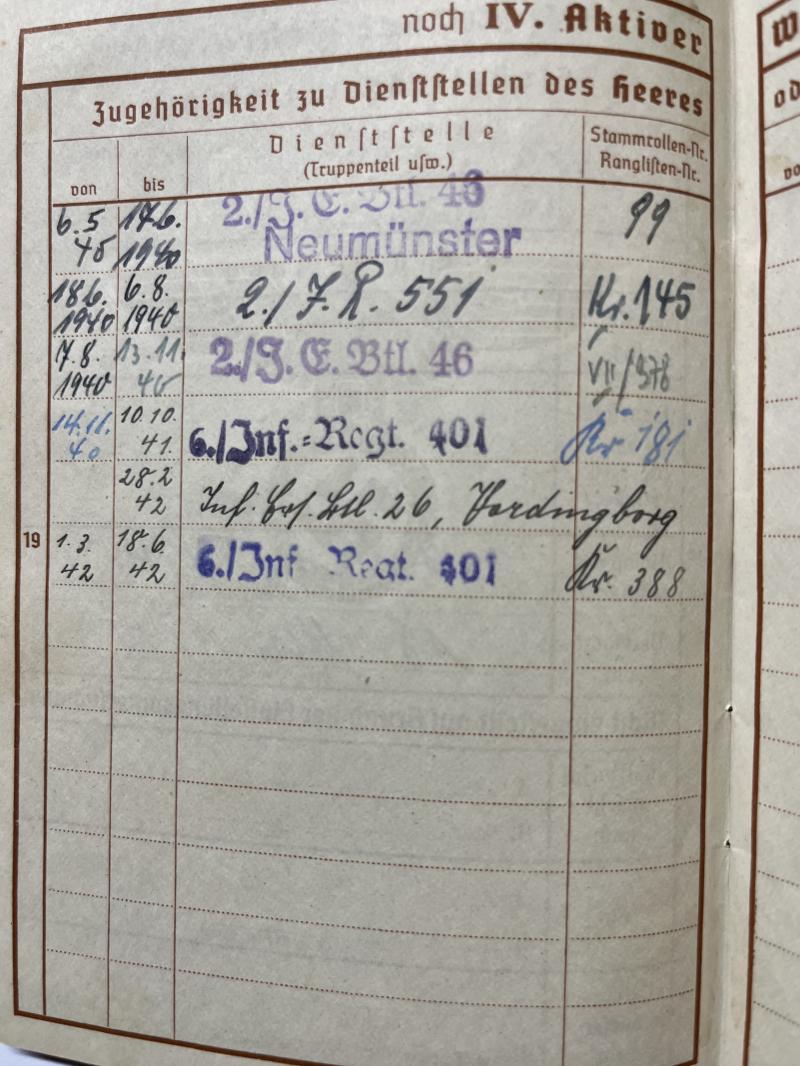 noch IV. Aktiver
Zugehörigkeit zu Dienststellen des Heeres
von bis Dienststelle (Truppenteil usw.) Stammrollen-Nr. Ranglisten-Nr.
6.5 40 17.6. 1940 2./J. E. Btl. 46 Neumünster 99
18.6. 1940 6.8. 1940 2./J.R. 551 Kr. 145
7.8. 1940 13.11. 40 2./J. E. Btl. 46 VII/378
14.11. 40 10.10. 41 6./Inf.=Regt. 401 Kr 181
28.2 42 Inf. Ers. Btl. 26, Vordingborg
19 1.3. 42 18.6. 42 6./Inf Regt. 401 Kr. 388
W
od
vo